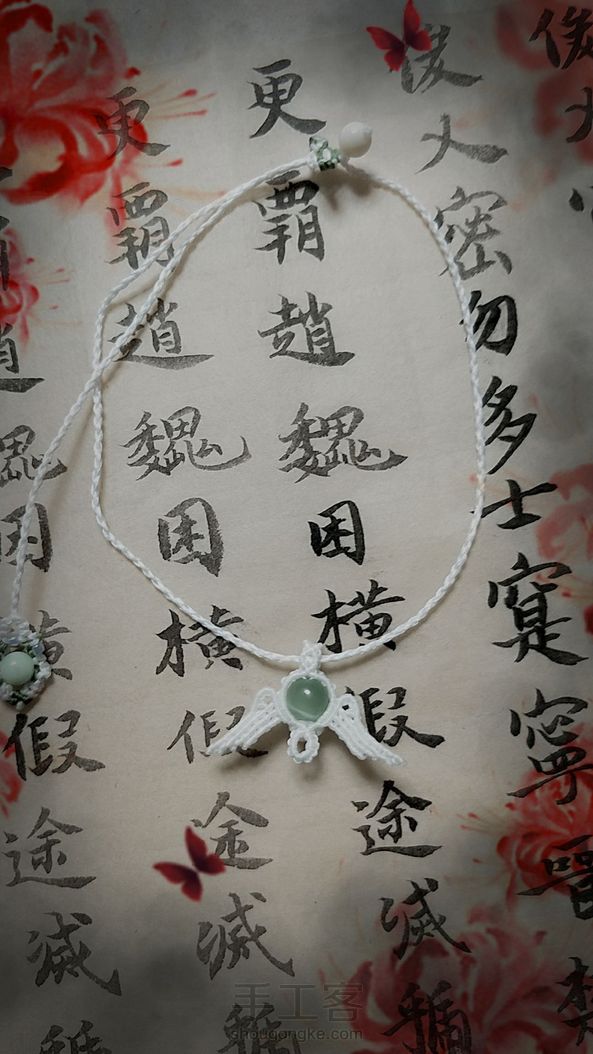 俊
俊乂密勿多士寔寧晉
更霸趙魏困橫假途滅虢
更霸趙魏困橫假途滅虢
趙魏困橫假途滅
手工客
shougongke.com